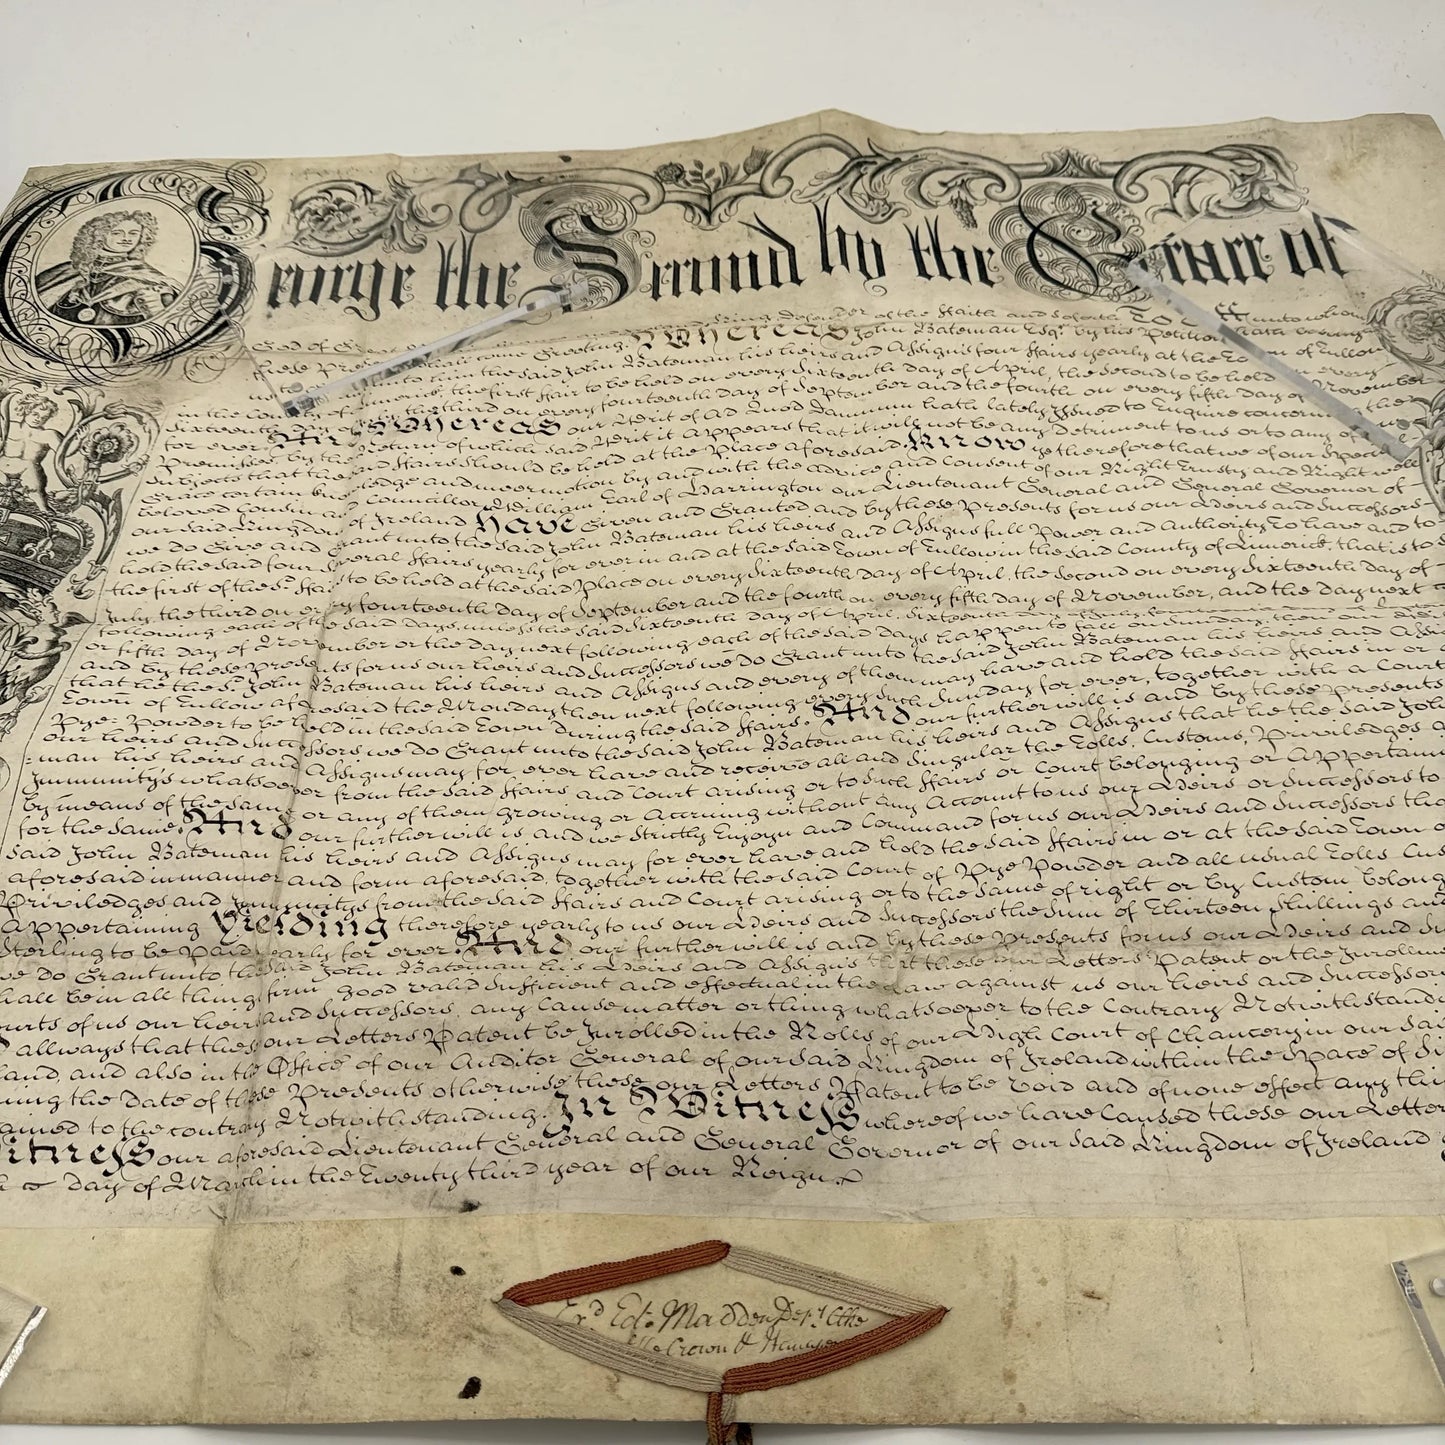 George the Second by the Grace of
God of Great defender of the Faith and so forth To unto whom
these Presents shall come Greeting. Whereas John Bateman Esqr. by his Petition hath besought
us to unto him the said John Bateman his heirs and Assigns four ffairs yearly at the Town of Tullow
in the County of Limerick, the first ffair to be held on every Sixteenth day of April, the second to be held on every
Sixteenth day of the third on every fourteenth day of September and the fourth on every fifth day of November
for ever. And Whereas our Writ of Ad Quod Damnum hath lately Issued to Enquire concerning the
Premisses, by the Return of which said Writ it appears that it will not be any Detriment to us or to any of
Subjects that the said ffairs should be held at the Place aforesaid. Know ye therefore that we of our special
Grace certain knowledge and meer motion by and with the advice and Consent of our Right Trusty and Right well
beloved Cousin and Councillor William Earl of Harrington our Lieutenant General and General Governor of
our said Kingdom of Ireland Have Given and Granted and by these Presents for us our Heirs and Successors
we do Give and Grant unto the said John Bateman his heirs and Assigns full Power and authority To have and to
hold the said four several ffairs yearly for ever in and at the said Town of Tullow in the said County of Limerick, that is to
the first of the sd. ffairs to be held at the said Place on every Sixteenth day of April, the second on every Sixteenth day of
July, the third on every fourteenth day of September and the fourth on every fifth day of November, and the day next
following each of the said days, unless the said Sixteenth day of April, Sixteenth day of July, fourteenth
or fifth day of November or the day next following each of the said days happen to fall on Sunday, then our
and by these presents for us our heirs and Successors we do Grant unto the said John Bateman his heirs and
that he the sd. John Bateman his heirs and Assigns and every of them may have and hold the said ffairs in or
Town of Tullow aforesaid the Monday then next following every such Sunday for ever, together with a Court
Pye=Powder to be held in the said Town during the said ffairs. And our further will is and by these presents
our heirs and Successors we do Grant unto the said John Bateman his heirs and Assigns that he the said John
=man his heirs and Assigns may for ever have and receive all and singular the Tolls, Customs, Priviledges
Immunitys whatsoever from the said ffairs and Court arising or to such ffairs or Court belonging or
by means of the same or any of them growing or Accruing without any Account to us our Heirs or Successors to
for the same. And our further will is and we strictly Enjoyn and Command for us our Heirs and Successors
said John Bateman his heirs and Assigns may for ever have and hold the said ffairs in or at the said Town
aforesaid in manner and form aforesaid, together with the said Court of Pye Powder and all usual Tolls
Priviledges and Immunitys from the said ffairs and Court arising or to the same of right or by Custom
Appertaining Yielding therefore yearly to us our Heirs and Successors the sum of Thirteen Shillings and
Sterling to be Paid yearly for ever. And our further will is and by these Presents for us our Heirs and
we do Grant unto the said John Bateman his Heirs and Assigns that these our Letters Patent or the Inrollment
shall be in all things firm good valid sufficient and effectual in the Law against us our heirs and Successors
Courts of us our heirs and Successors, any cause matter or thing whatsoever to the Contrary Notwithstanding
allways that these our Letters Patent be Inrolled in the Rolls of our High Court of Chancery in our said
land, and also in the Office of our Auditor General of our said Kingdom of Ireland within the Space of
the Date of these Presents otherwise these our Letters Patent to be void and of none effect any thing
to the contrary Notwithstanding. In Witness whereof we have Caused these our Letters
Witness our aforesaid Lieutenant General and General Governor of our said Kingdom of Ireland
day of March in the Twenty third year of our Reign.
Ed: Madden Depty Clke
Crown &